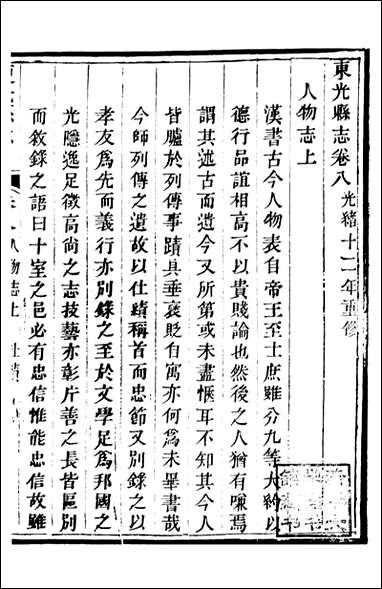 東光縣志卷八 光緒十二年重修
人物志上
漢書古今人物表自帝王至士庶雖分九等大約以
德行品誼相高不以貴賤論也然後之人猶有嗛焉
謂其述古而遺今又所第或未盡愜耳不知其今人
皆臚於列傳事蹟具垂褒貶自寓亦何爲未畢書哉
今師列傳之遺故以仕績稱首而忠節又別錄之以
孝友爲先而義行亦別錄之至於文學足爲邦國之
光隱逸足徵高尚之志技藝亦彰片善之長皆區別
而敘錄之語曰十室之邑必有忠信惟能忠信故雖
人物志上
仕績